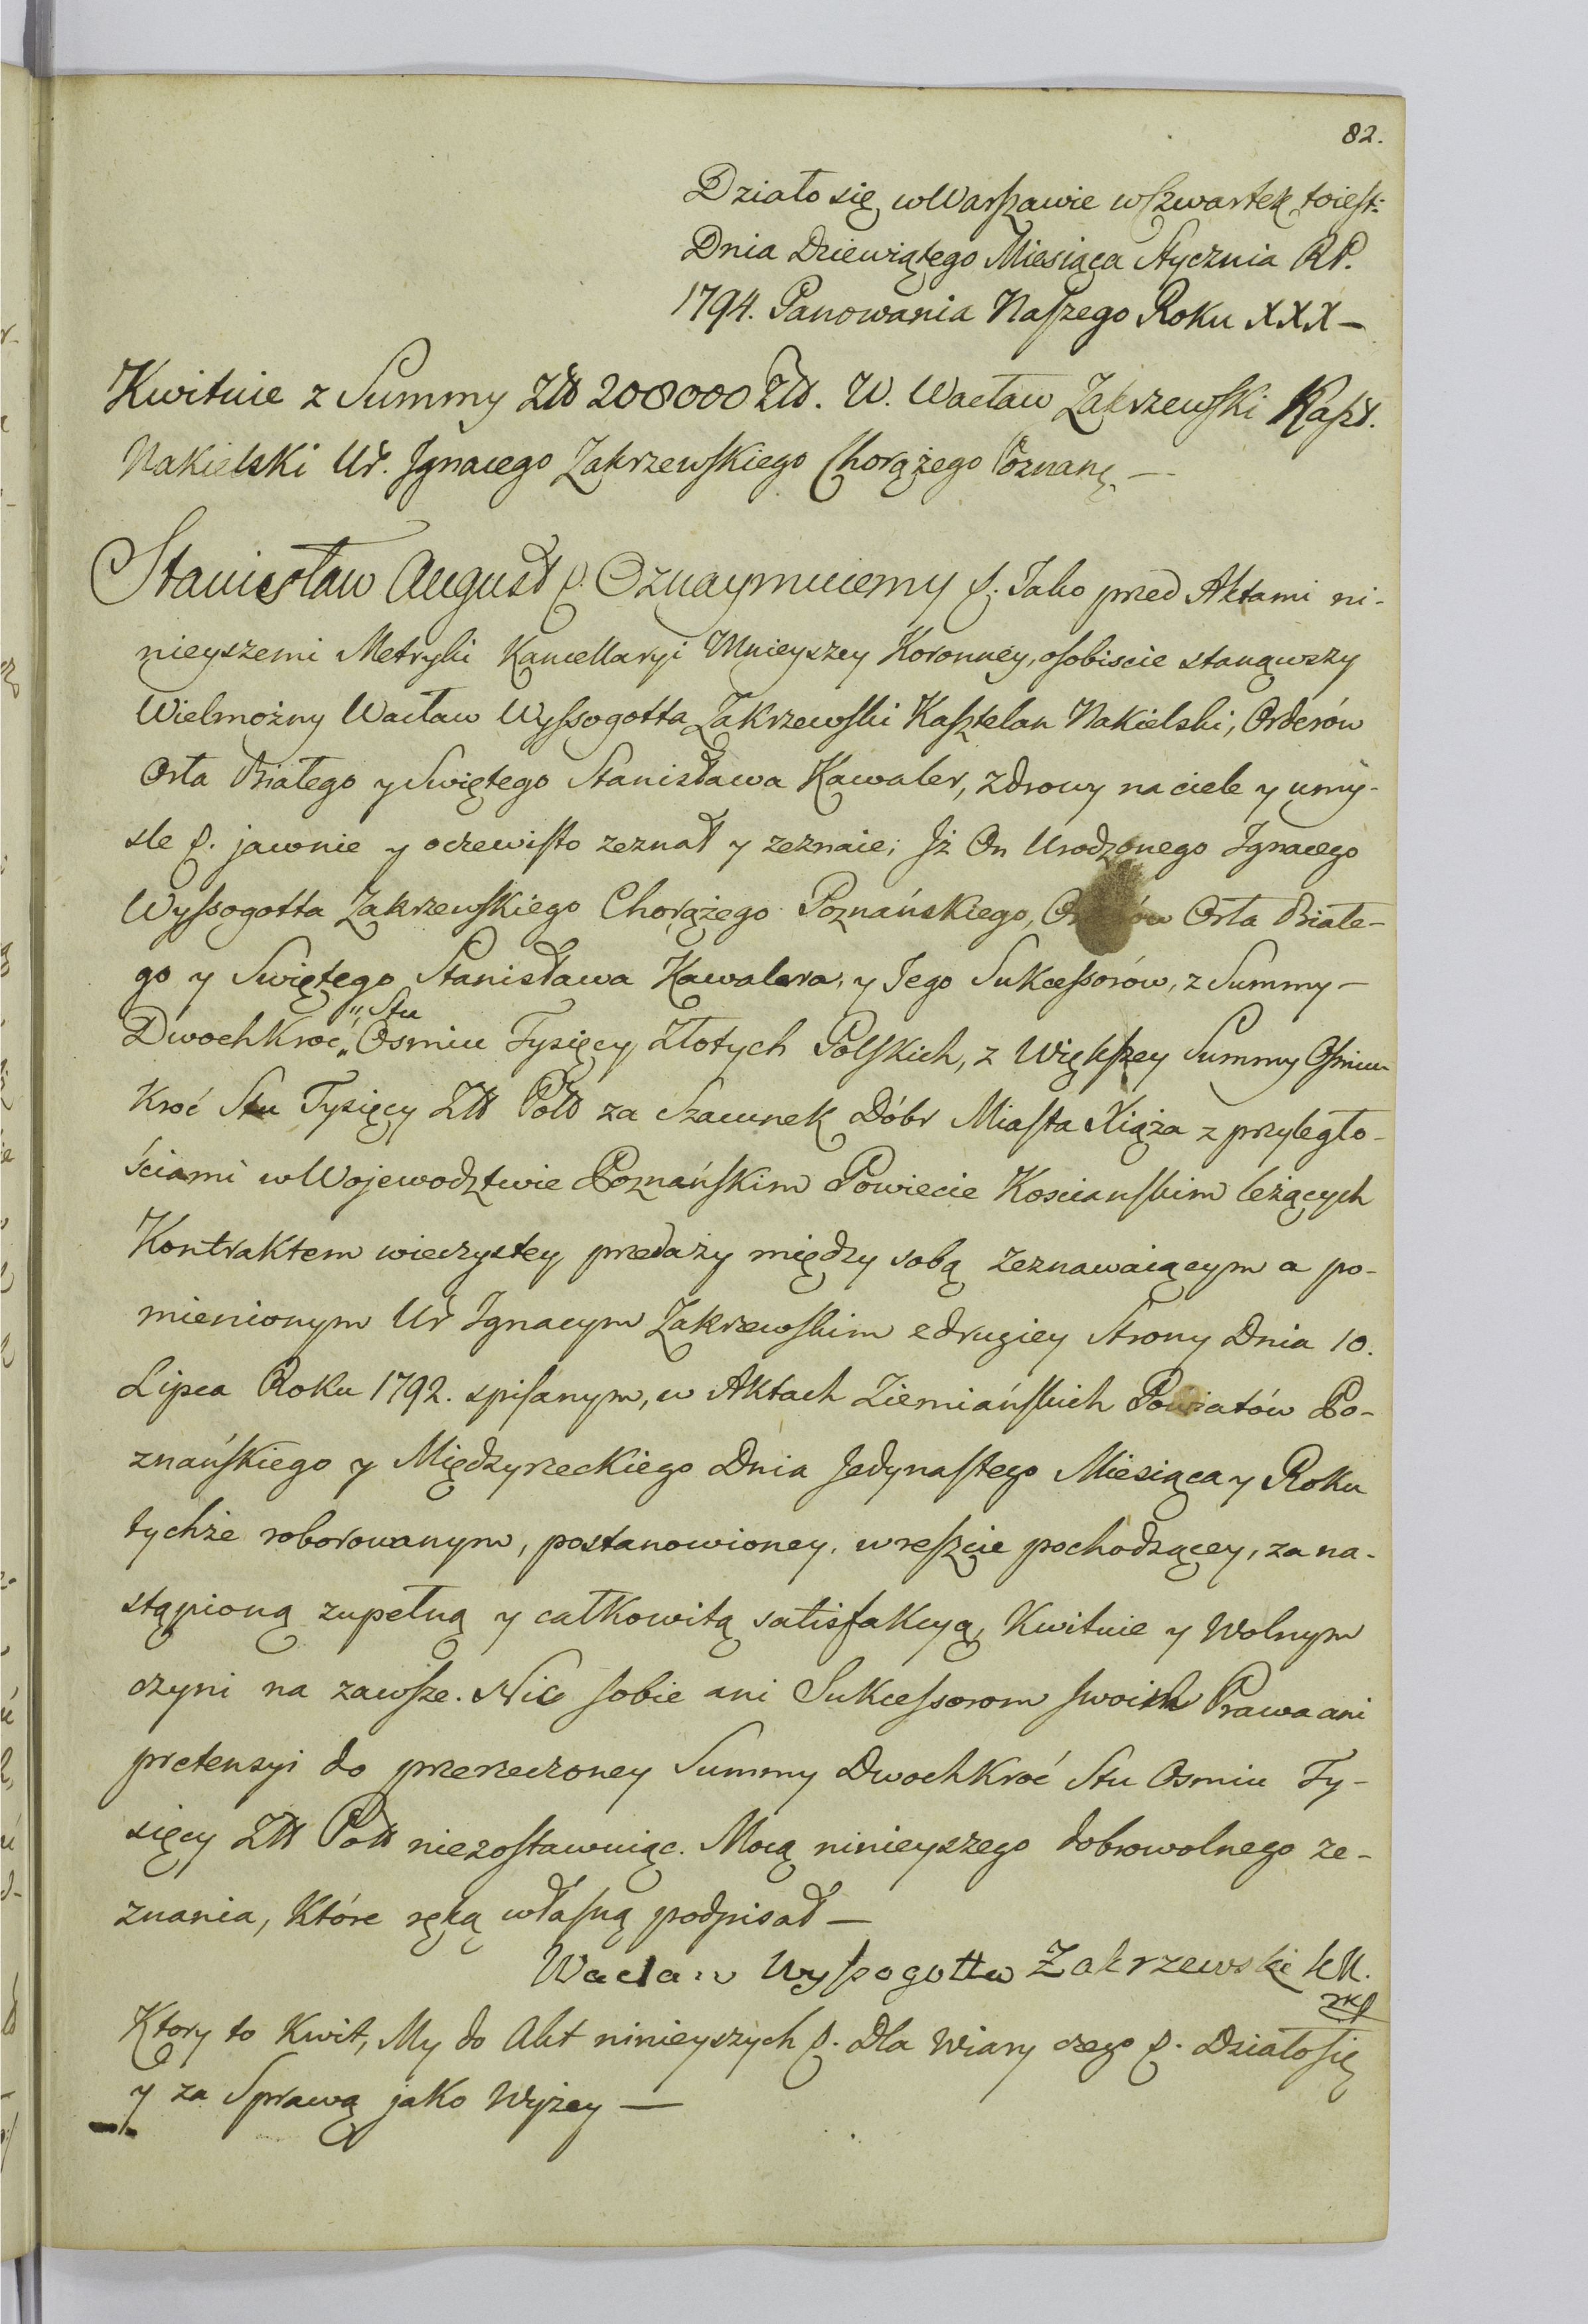 82.
Działo się w Warszawie w Czwartek toiest:
Dnia Dziewiątego Miesiąca Stycznia RP.
1794. Panowania Naszego Roku XXX —
Kwituie z Summy Złł 208000 Złł. W. Wacław Zakrzewski Kaszt.
Nakielski Ur. Jgnacego Zakrzewskiego Chorążego Poznań. —
Stanisław August &. Oznaymuiemy &. Jako przed Aktami ni-
nieyszemi Metryki Kancellaryi Mnieyszey Koronney, osobiscie stanąwszy
Wielmożny Wacław Wyssogotta Zakrzewski Kasztelan Nakielski, Orderów
Orła Białego y Swiętego Stanisława Kawaler, zdrowy na ciele y umy-
sle &. jawnie y oczewisto zeznał y zeznaie; Jż On Urodzonego Jgnacego
Wyssogotta Zakrzewskiego Chorążego Poznańskiego, Orderów Orła Białe-
go y Swiętego Stanisława Kawalera, y Jego Sukcessorów, z Summy —
Dwochkroć " Stu " Osmiu Tysięcy Złotych Polskich, z Większey Summy Osmiu-
kroć Stu Tysięcy Złł Poll za Szacunek Dóbr Miasta Xiąża z przyległo-
ściami w Wojewodztwie Poznańskim Powiecie Koscianskim leżących
Kontraktem wieczystey przedaży między sobą zeznawaiącym a po-
mienionym Ur Jgnacym Zakrzewskim z drugiey Strony Dnia 10.
Lipca Roku 1792. spisanym, w Aktach Ziemiańskich Powiatów Po-
znańskiego y Międzyrzeckiego Dnia Jedynastego Miesiąca y Roku
tychże roborowanym, postanowioney, w reszcie pochodzącey, za na-
stąpioną zupełną y całkowitą satisfakcyą, Kwituie y Wolnym
czyni na zawsze. Nic sobie ani Sukcessorom swoim Prawa ani
pretensyi do przerzeczoney Summy Dwochkroć Stu Osmiu Ty-
sięcy Złł Poll niezostawuiąc. Mocą ninieyszego dobrowolnego ze-
znania, Które ręką własną podpisał —
Waclaw Wyssogotta Zakrzewski kN.
mp
Ktory to Kwit, My do Akt ninieyszych &. Dla Wiary czego &. Działo się
y za Sprawą jako Wyżey —